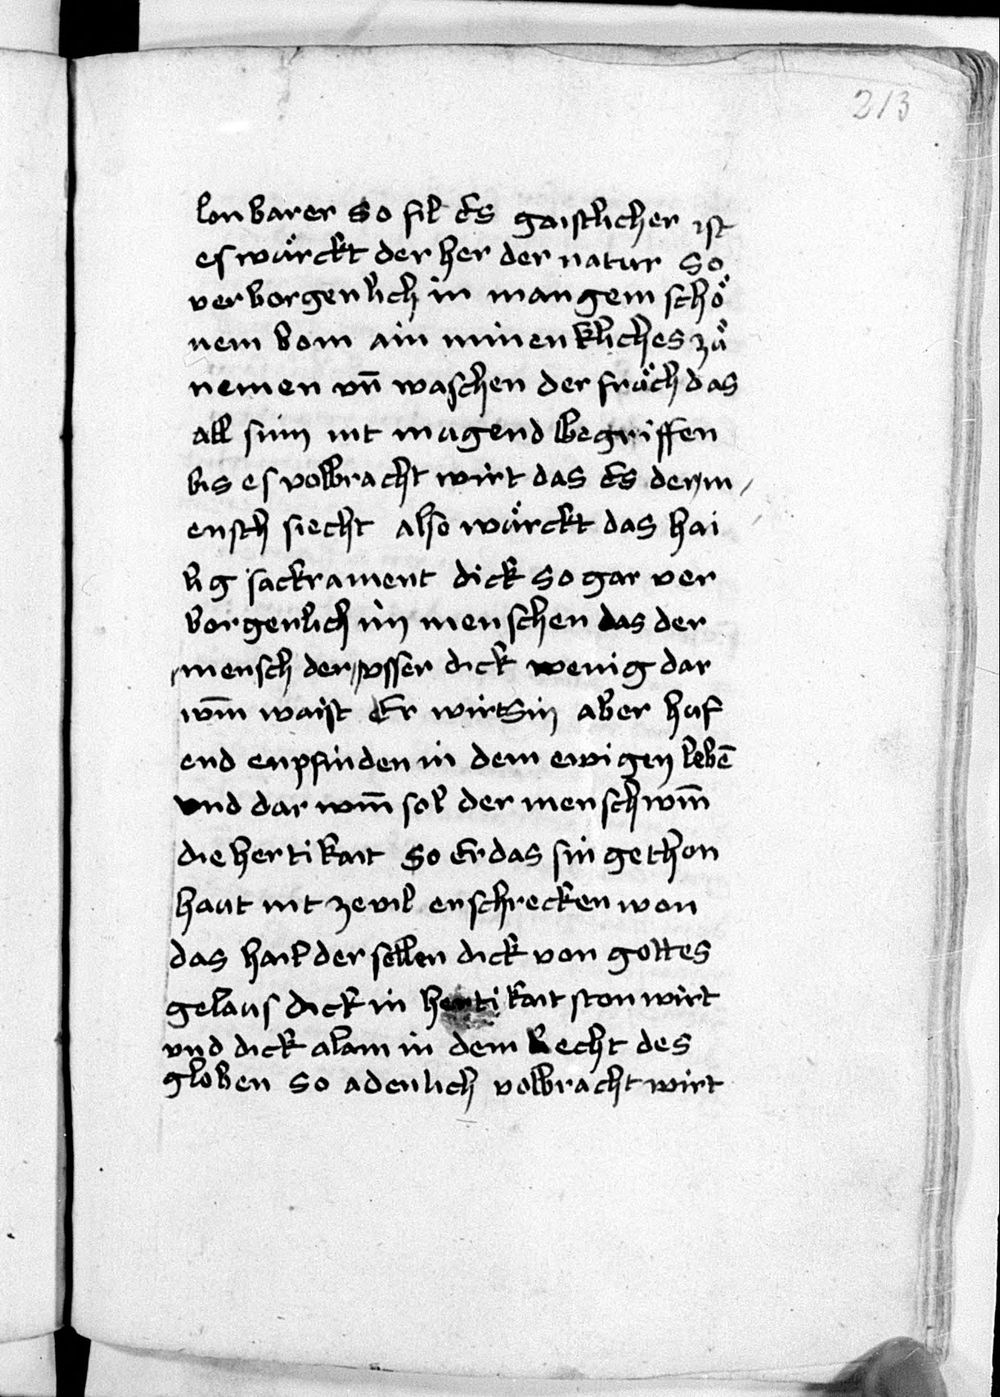 213
lonbarer so fil es gaistlicher ist
es wu̇rckt der her der natur so
verborgenlich in mangem schȯ
nem bom ain minenkliches zu̇
nemen vn̄ waschen der fru̇ch das
all sinn nit mugend begriffen
bis es volbracht wirt das es der m
ensch siecht also wu̇rckt das hai
lig sackrament dick so gar ver
borgenlich im menschen das der
mensch der vsser dick wenig dar
wm̄ waist Er wirt sin aber huf
end enpfinden in dem ewigen lebē
vnd dar wm̄ sol der mensch wm̄
die hertikait so er das sin gethon
haut nit ze vil erschrecken won
das hail der sellen dick von gottes
gelaus dick in hertikait ston wirt
vnd dick alain in dem liecht des
globen so adenlich volbracht wirt